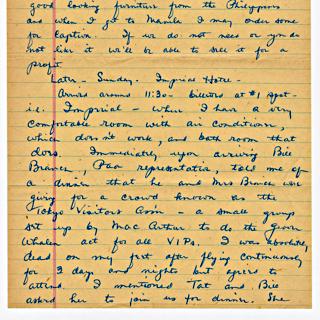 good looking furniture from the Philippines
and when I get to Manila I may order some
for Caption. If we do not need or you do
not like it we'll be able to sell it for a
profit
Later - Sunday. Imperial Hotel -
Arrived around 11:30 - billeted at #1 spot -
i.e. Imperial - where I have a very
comfortable room with air conditioner,
which doesn't work, and bath room that
does. Immediately upon arriving Bill
Branch, Paa representative, told me of
a dinner that he and Mrs Branch were
giving for a crowd known as the
Tokyo Visitors Assn - a small group
set up by MacArthur to do the Grover
Whalen act for all V.I.P.s. I was absolutely
dead on my feet after flying continuously
for 3 days and nights but agreed to
attend. I mentioned Tat and Bill
asked her to join us for dinner. She